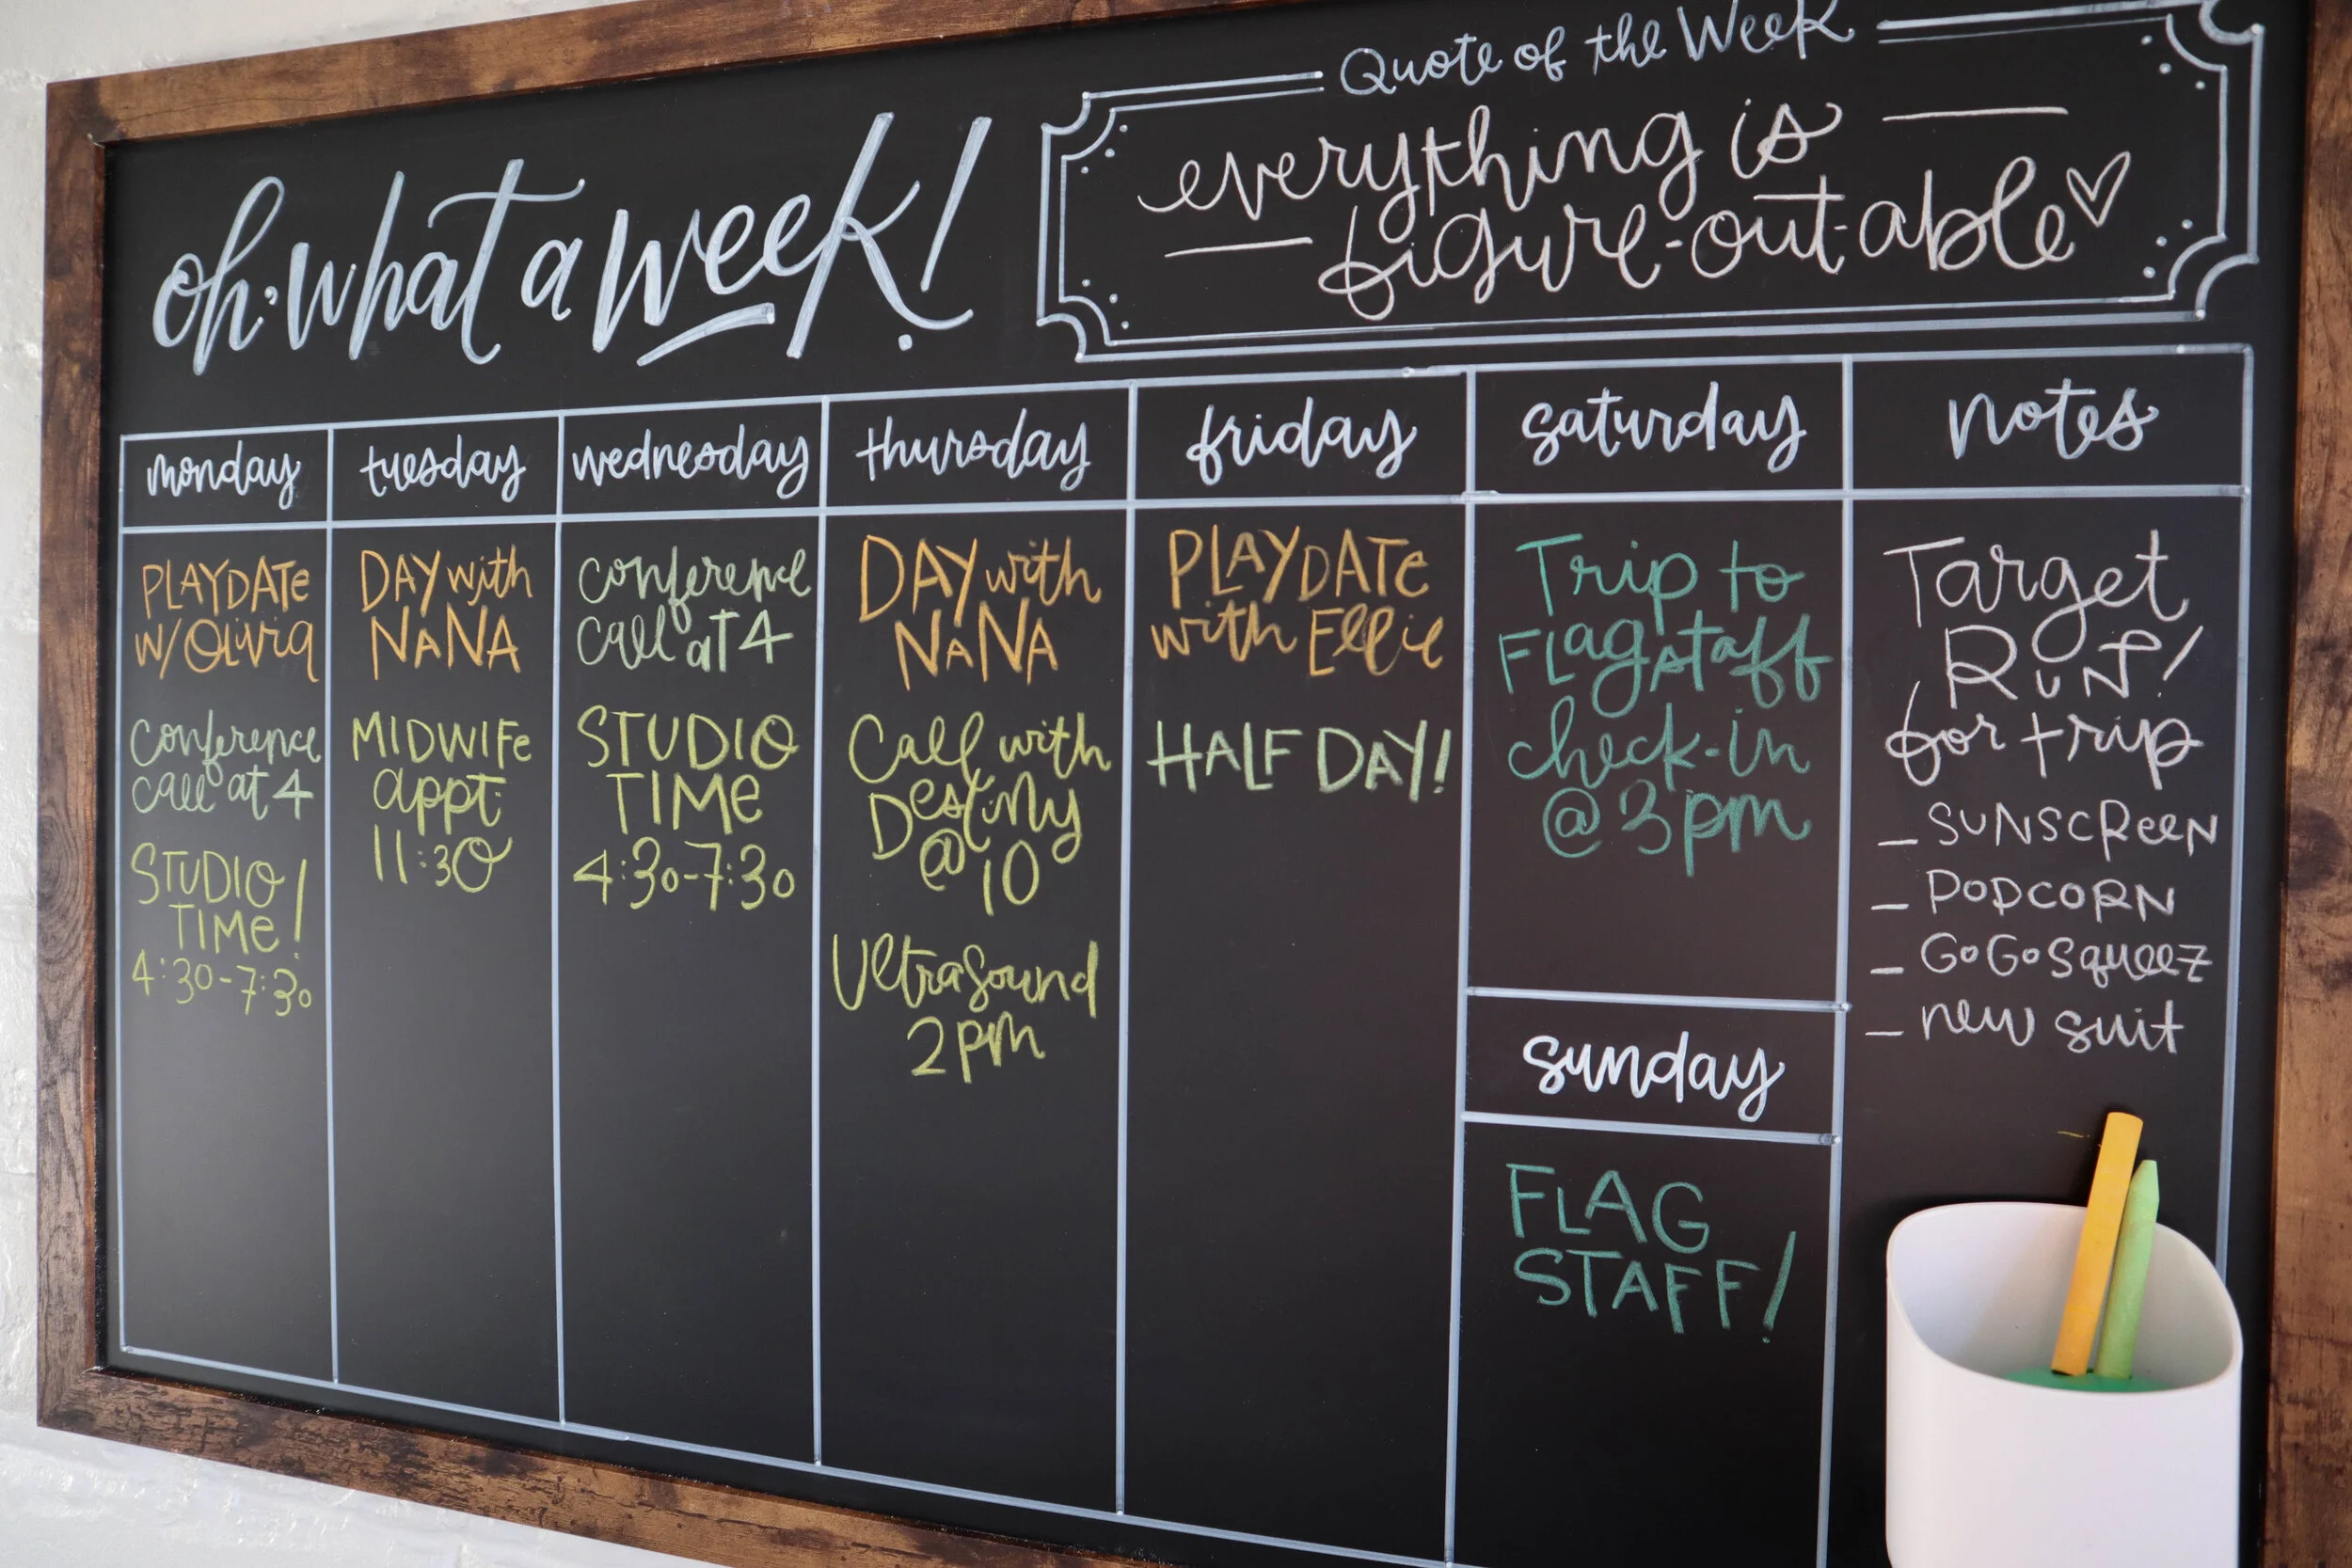 oh, what a week!
Quote of the Week
everything is
figure-out-able
monday
PLAYDATe
w/Olivia
Conference
call at 4
STUDIO
TIMe!
4:30-7:30
tuesday
DAY with
NaNA
MIDWIFe
appt
11:30
wednesday
Conference
call at 4
STUDIO
TIMe
4:30-7:30
thursday
DAY with
NaNA
Call with
Destiny
@ 10
Ultrasound
2pm
friday
PLAYDATe
with Ellie
HALF DAY!
saturday
Trip to
Flagstaff
check-in
@ 3pm
sunday
FLAG
STAFF!
notes
Target
RuN!
for trip
- SuNSCReeN
- POPCORN
- GoGo Squeez
- new suit